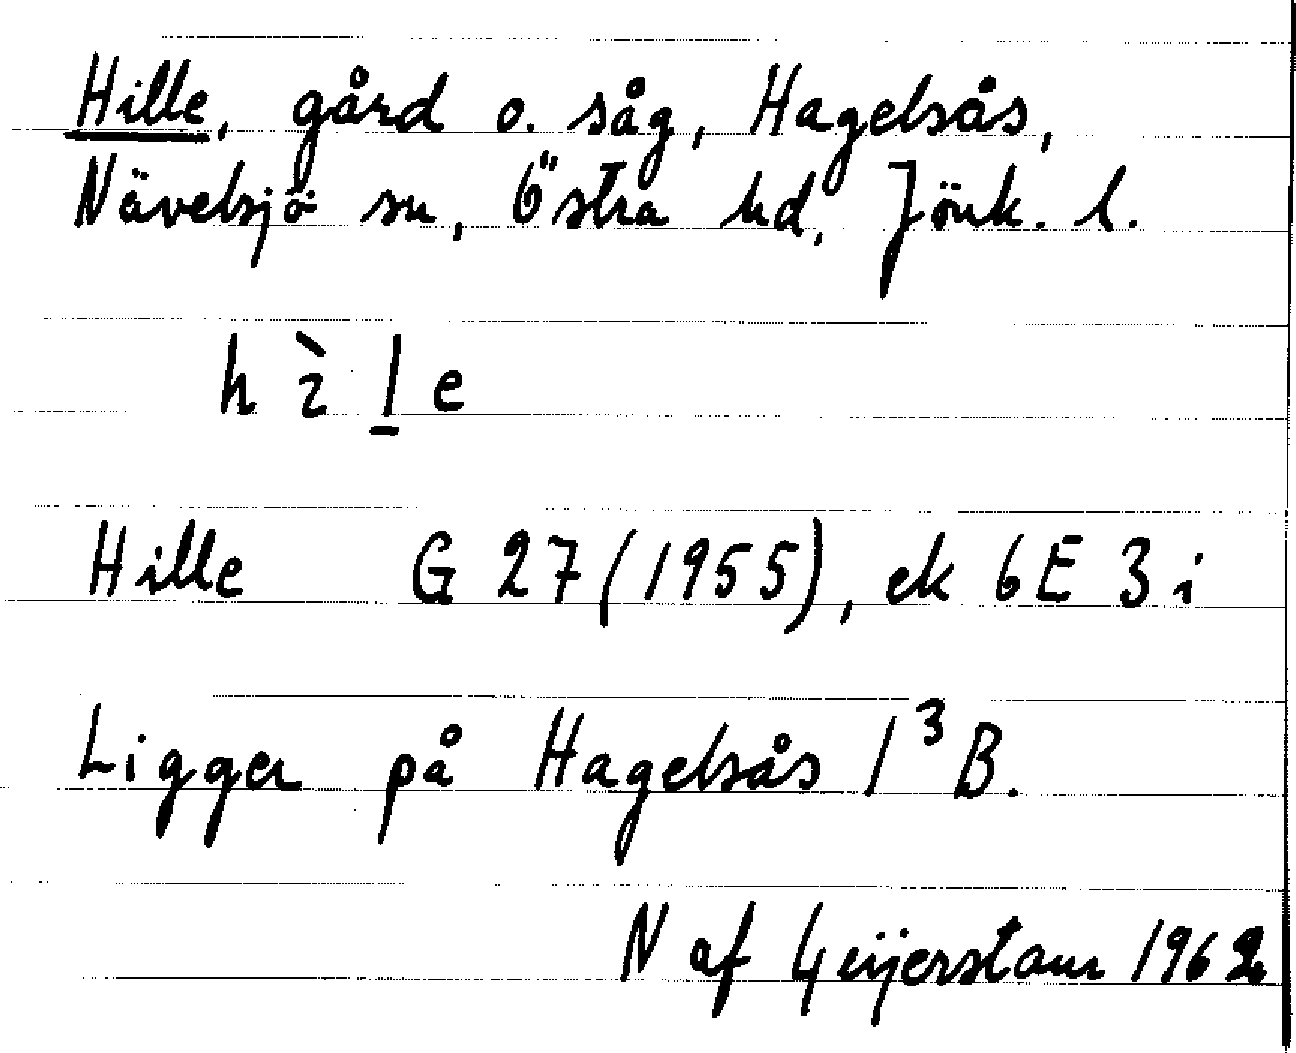 Hille, gård o. såg, Hagelsås,
Nävelsjö sn, Östra hd, Jönk. l.
h ì l e
Hille G 27 (1955), ek 6E 3 i
Ligger på Hagelsås 1³ B.
N af Geijerstam 1962